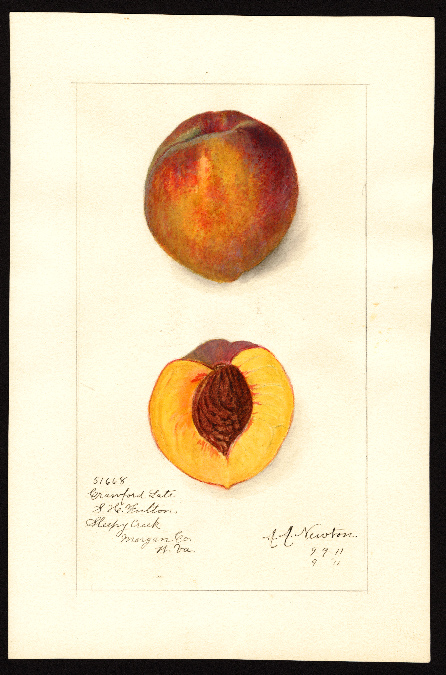 51668
Crawford Late.
S. H. Fulton.
Sleepy Creek
Morgan Co.
W. Va.
A. A. Newton.
9 9 11
9 11